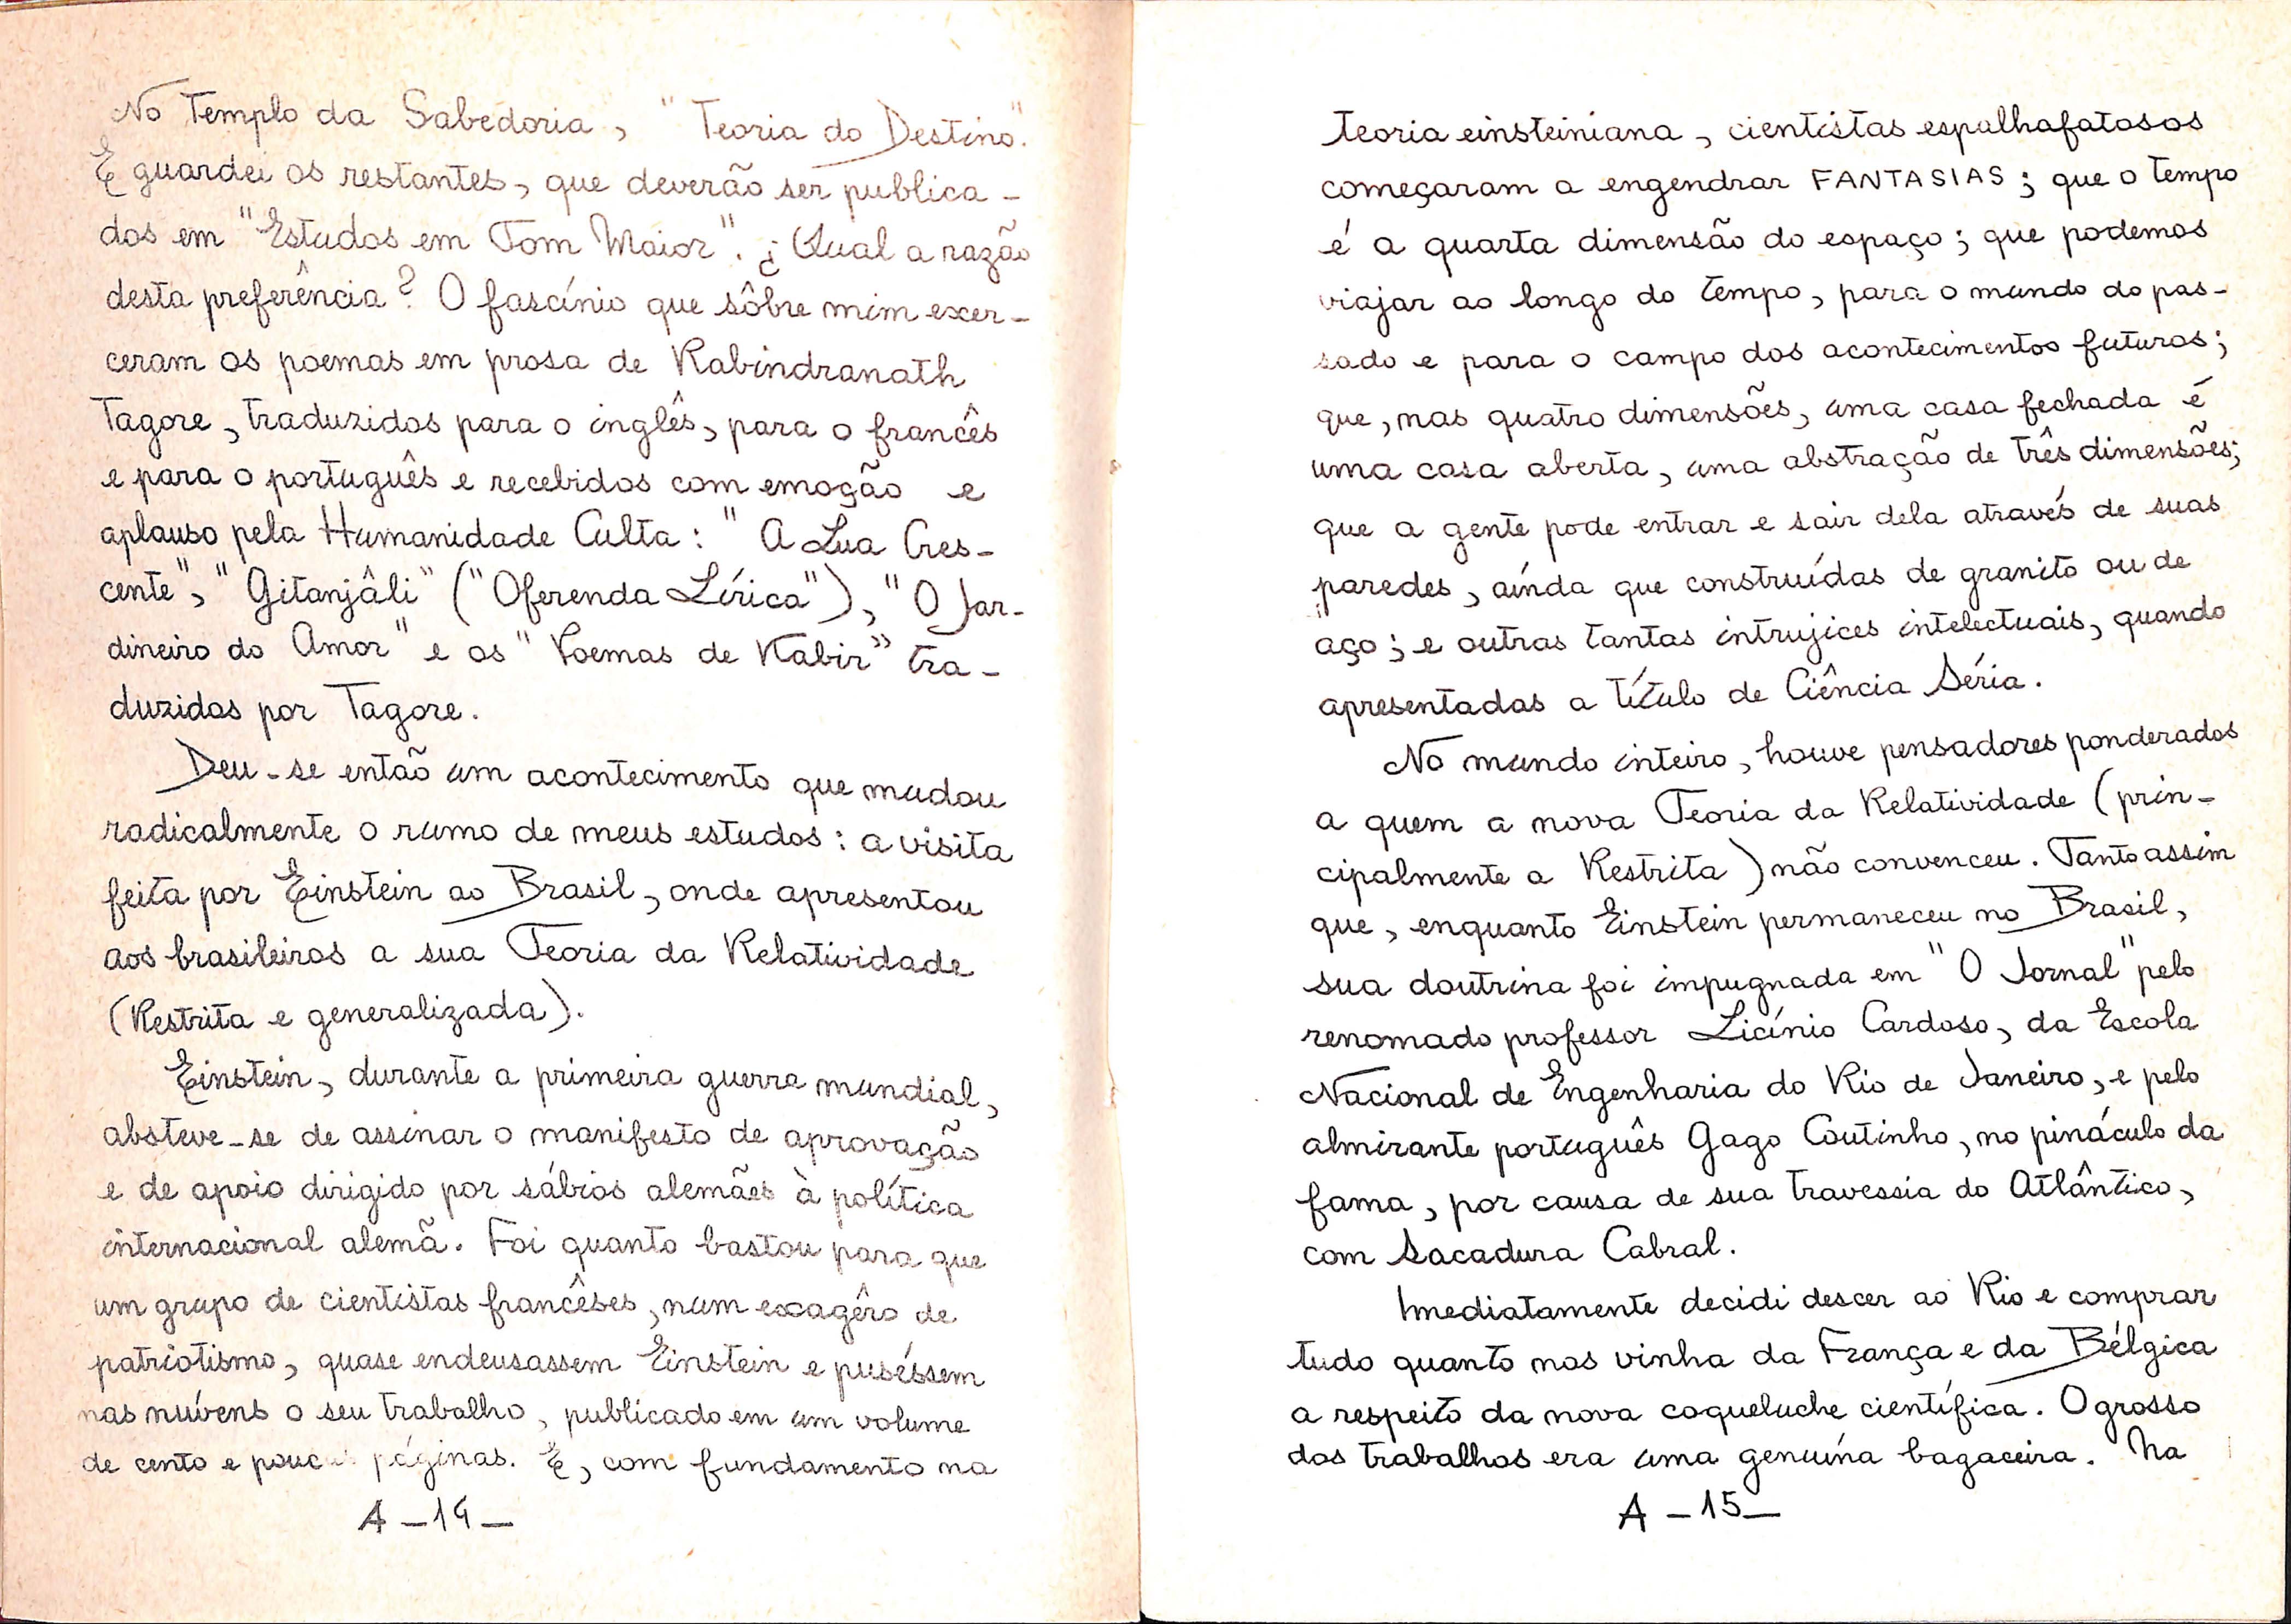 No Templo da Sabedoria, "Teoria do Destino".
E guardei os restantes, que deverão ser publica-
dos em "Estudos em Tom Maior". ¿Qual a razão
desta preferência? O fascínio que sôbre mim exer-
ceram os poemas em prosa de Rabindranath
Tagore, traduzidos para o inglês, para o francês
e para o português e recebidos com emoção e
aplauso pela Humanidade Culta: "A Lua Cres-
cente", "Gitanjâli" ("Oferenda Lírica"), "O Jar-
dineiro do Amor" e os "Poemas de Kabir" tra-
duzidos por Tagore.
Deu-se então um acontecimento que mudou
radicalmente o rumo de meus estudos: a visita
feita por Einstein ao Brasil, onde apresentou
aos brasileiros a sua Teoria da Relatividade
(Restrita e generalizada).
Einstein, durante a primeira guerra mundial,
absteve-se de assinar o manifesto de aprovação
e de apoio dirigido por sábios alemães à política
internacional alemã. Foi quanto bastou para que
um grupo de cientistas francêses, num exagêro de
patriotismo, quase endeusassem Einstein e puséssem
nas nuvens o seu trabalho, publicado em um volume
de cento e poucas páginas. E, com fundamento na
A - 14 -
teoria einsteiniana, cientistas espalhafatosos
começaram a engendrar FANTASIAS; que o tempo
é a quarta dimensão do espaço; que podemos
viajar ao longo do tempo, para o mundo do pas-
sado e para o campo dos acontecimentos futuros;
que, nas quatro dimensões, uma casa fechada é
uma casa aberta, uma abstração de três dimensões;
que a gente pode entrar e sair dela através de suas
paredes, aínda que construídas de granito ou de
aço; e outras tantas intrujices intelectuais, quando
apresentadas a título de Ciência Séria.
No mundo inteiro, houve pensadores ponderados
a quem a nova Teoria da Relatividade (prin-
cipalmente a Restrita) não convenceu. Tanto assim
que, enquanto Einstein permaneceu no Brasil,
sua doutrina foi impugnada em "O Jornal" pelo
renomado professor Licínio Cardoso, da Escola
Nacional de Engenharia do Rio de Janeiro, e pelo
almirante português Gago Coutinho, no pináculo da
fama, por causa de sua travessia do Atlântico,
com Sacadura Cabral.
Imediatamente decidi descer ao Rio e comprar
tudo quanto nos vinha da França e da Bélgica
a respeito da nova coqueluche científica. O grosso
dos trabalhos era uma genuína bagaceira. Na
A - 15 -